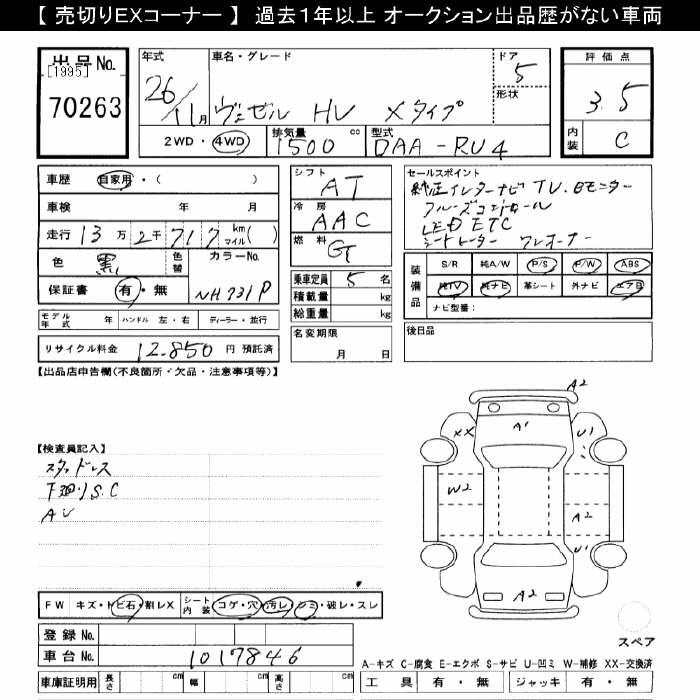 【 売切りEXコーナー 】 過去1年以上 オークション出品歴がない車両
出品No. [1995] 70263
年式 26/11月
車名・グレード ヴェゼル HV Xタイプ
ドア 5
形状
2WD・4WD
排気量 1500 cc
型式 DAA-RU4
評価点 3.5
内装 C
車歴 自家用・( )
車検 年 月
走行 13万2千717 km マイル( )
色 黒 色替 カラーNo. NH731P
保証書 有・無
モデル年式 年 ハンドル 左・右 ディーラー・並行
リサイクル料金 12.850 円 預託済
シフト AT
冷房 AAC
燃料 G
乗車定員 5 名
積載量 kg
総重量 kg
名変期限 月 日
セールスポイント
純正インターナビ TV.Bモニター
クルーズコントロール
LED ETC
シートヒーター ワンオーナー
装備品
S/R 純A/W P/S P/W ABS
純TV 純ナビ 革シート 外ナビ エアB
ナビ型番:
後日品
【出品店申告欄(不良箇所・欠品・注意事項等)】
【検査員記入】
スタッドレス
下廻りS.C
AU
FW キズ・トビ石・割レX シート内装 コゲ・穴・汚レ・シミ・破レ・スレ
登録No.
車台No. 1017846
車庫証明用 長さ cm 幅 cm 高さ cm
A2
XX A1 U1
W2 A2
U1
A2
スペア
A-キズ C-腐食 E-エクボ S-サビ U-凹ミ W-補修 XX-交換済
工具 有・無 ジャッキ 有・無